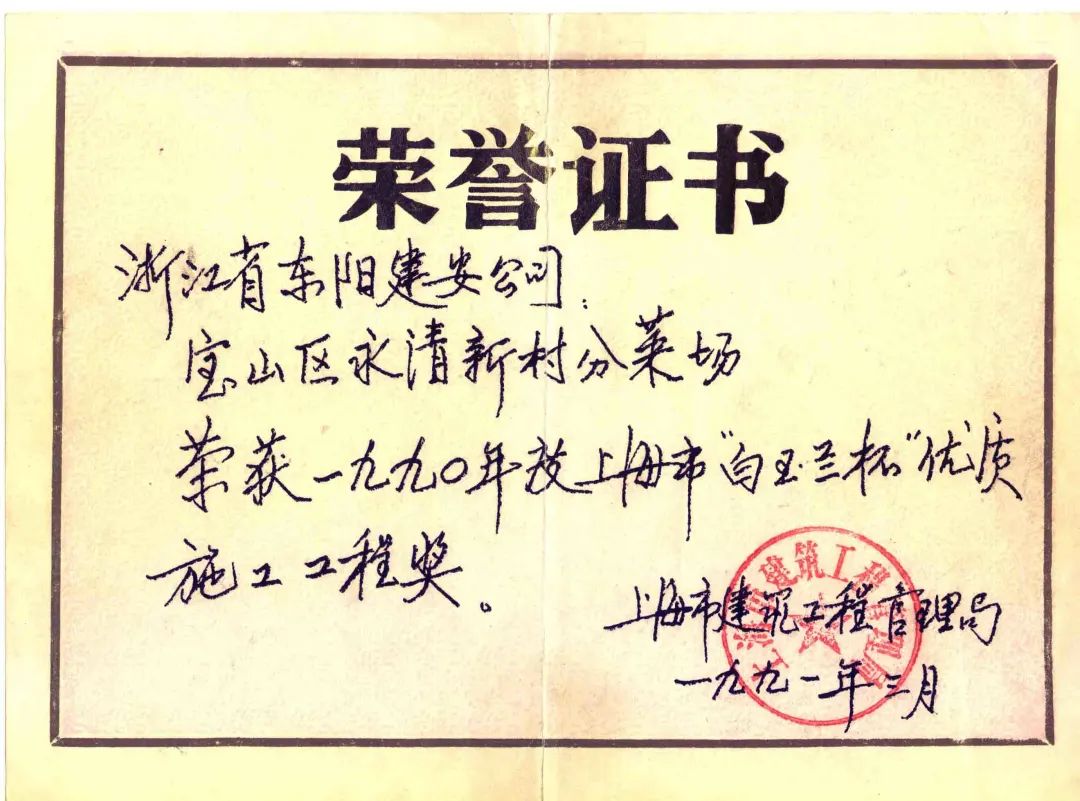 荣誉证书
浙江省东阳建安公司：
宝山区永清新村分菜场
荣获一九九〇年度上海市"白玉兰杯"优质
施工工程奖。
上海市建筑工程管理局
一九九一年三月
上海市建筑工程管理局